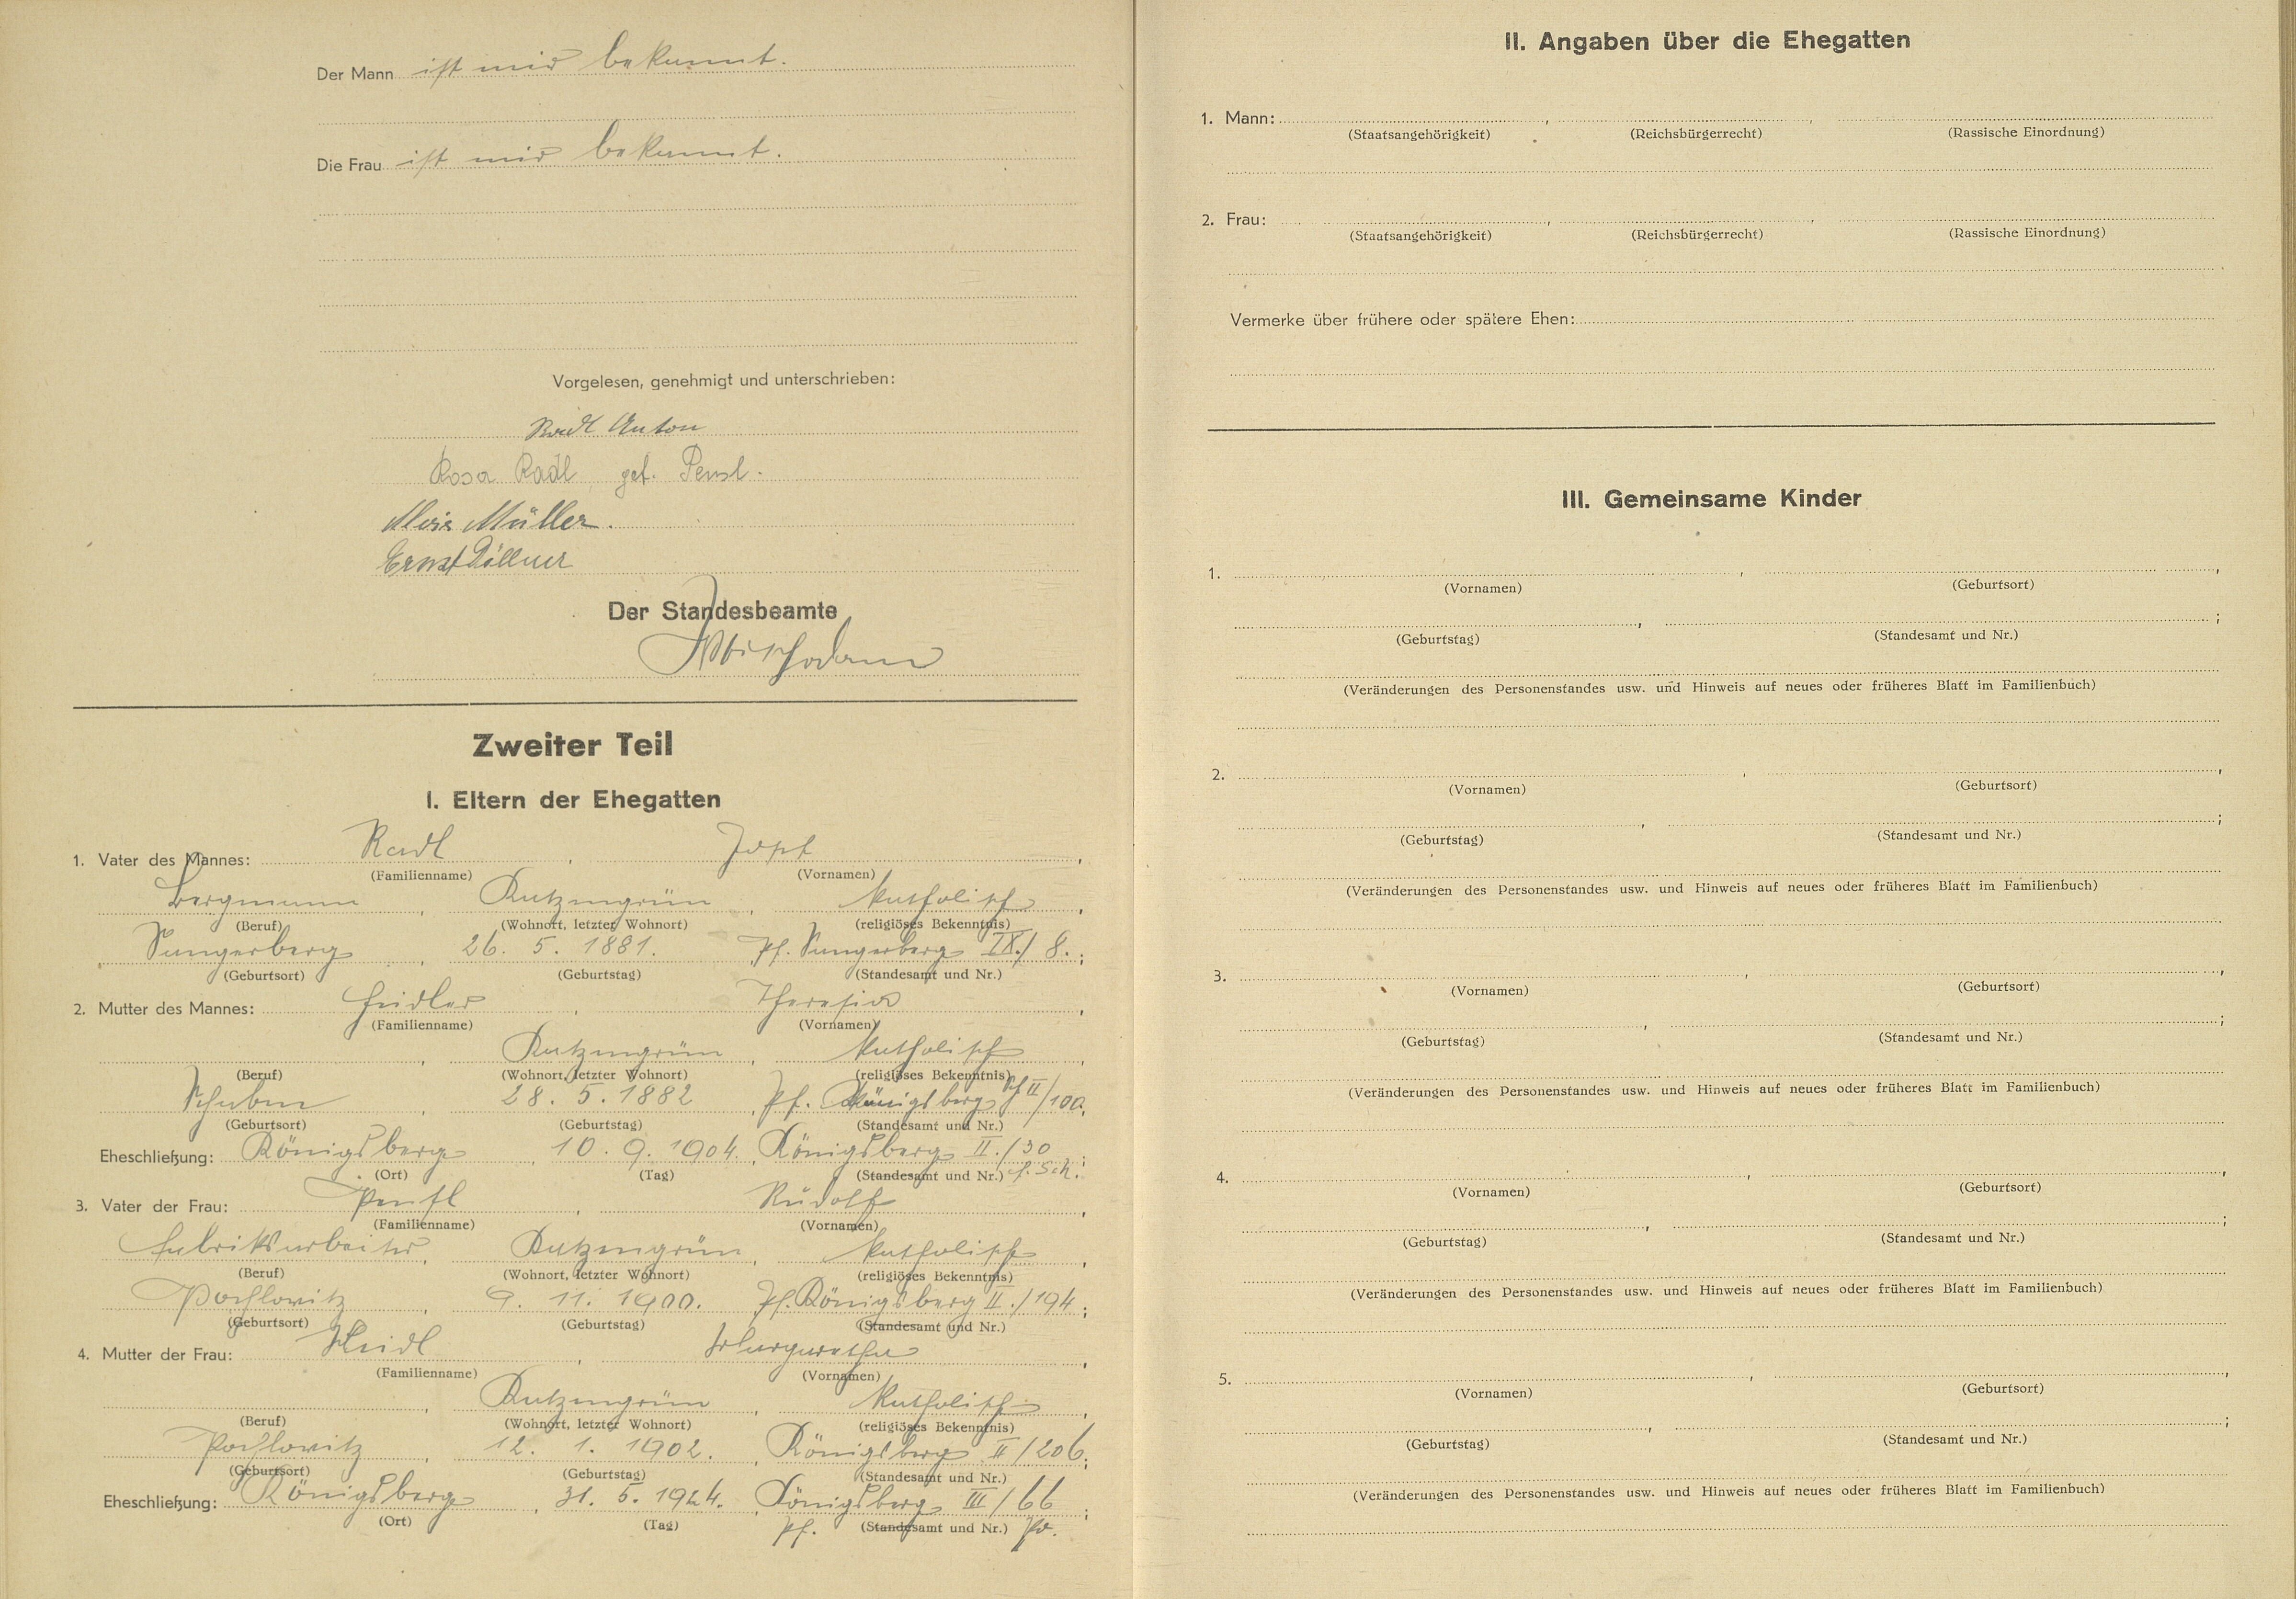 Der Mann ist mir bekannt.
Die Frau ist mir bekannt.
Vorgelesen, genehmigt und unterschrieben:
Radl Anton
Rosa Radl geb. Pensl.
Alois Müller.
Ernst
Der Standesbeamte
Zweiter Teil
I. Eltern der Ehegatten
1. Vater des Mannes: Radl , Josef ,
(Familienname) (Vornamen)
Bergmann , Katzengrün , katholisch ,
(Beruf) (Wohnort, letzter Wohnort) (religiöses Bekenntnis)
Sangerberg , 26. 5. 1881. Pf. Sangerberg IX./ 8. ;
(Geburtsort) (Geburtstag) (Standesamt und Nr.)
2. Mutter des Mannes: Heidler , Theresia ,
(Familienname) (Vornamen)
, Katzengrün , katholisch ,
(Beruf) (Wohnort, letzter Wohnort) (religiöses Bekenntnis)
Schaben , 28. 5. 1882 , Pf. Königsberg II/100 ;
(Geburtsort) (Geburtstag) (Standesamt und Nr.)
Eheschließung: Königsberg , 10. 9. 1904. , Königsberg II./30 ;
(Ort) (Tag) (Standesamt und Nr.) f. Sch.
3. Vater der Frau: Pensl , Rudolf ,
(Familienname) (Vornamen)
Fabriksarbeiter , Katzengrün , katholisch ,
(Beruf) (Wohnort, letzter Wohnort) (religiöses Bekenntnis)
Pochlowitz , 9. 11. 1900. Pf. Königsberg II./194 ;
(Geburtsort) (Geburtstag) (Standesamt und Nr.)
4. Mutter der Frau: Heidl , Margaretha ,
(Familienname) (Vornamen)
, Katzengrün , katholisch ,
(Beruf) (Wohnort, letzter Wohnort) (religiöses Bekenntnis)
Pochlowitz , 12. 1. 1902. , Königsberg II/206 ;
(Geburtsort) (Geburtstag) (Standesamt und Nr.)
Eheschließung: Königsberg , 31. 5. 1924. , Königsberg III/66 ;
(Ort) (Tag) Pf. (Standesamt und Nr.) Po.
II. Angaben über die Ehegatten
1. Mann: , ,
(Staatsangehörigkeit) (Reichsbürgerrecht) (Rassische Einordnung)
2. Frau: , ,
(Staatsangehörigkeit) (Reichsbürgerrecht) (Rassische Einordnung)
Vermerke über frühere oder spätere Ehen:
III. Gemeinsame Kinder
1. , ,
(Vornamen) (Geburtsort)
, ;
(Geburtstag) (Standesamt und Nr.)
(Veränderungen des Personenstandes usw. und Hinweis auf neues oder früheres Blatt im Familienbuch)
2. , ,
(Vornamen) (Geburtsort)
, ;
(Geburtstag) (Standesamt und Nr.)
(Veränderungen des Personenstandes usw. und Hinweis auf neues oder früheres Blatt im Familienbuch)
3. , ,
(Vornamen) (Geburtsort)
, ;
(Geburtstag) (Standesamt und Nr.)
(Veränderungen des Personenstandes usw. und Hinweis auf neues oder früheres Blatt im Familienbuch)
4. , ,
(Vornamen) (Geburtsort)
, ;
(Geburtstag) (Standesamt und Nr.)
(Veränderungen des Personenstandes usw. und Hinweis auf neues oder früheres Blatt im Familienbuch)
5. , ,
(Vornamen) (Geburtsort)
, ;
(Geburtstag) (Standesamt und Nr.)
(Veränderungen des Personenstandes usw. und Hinweis auf neues oder früheres Blatt im Familienbuch)